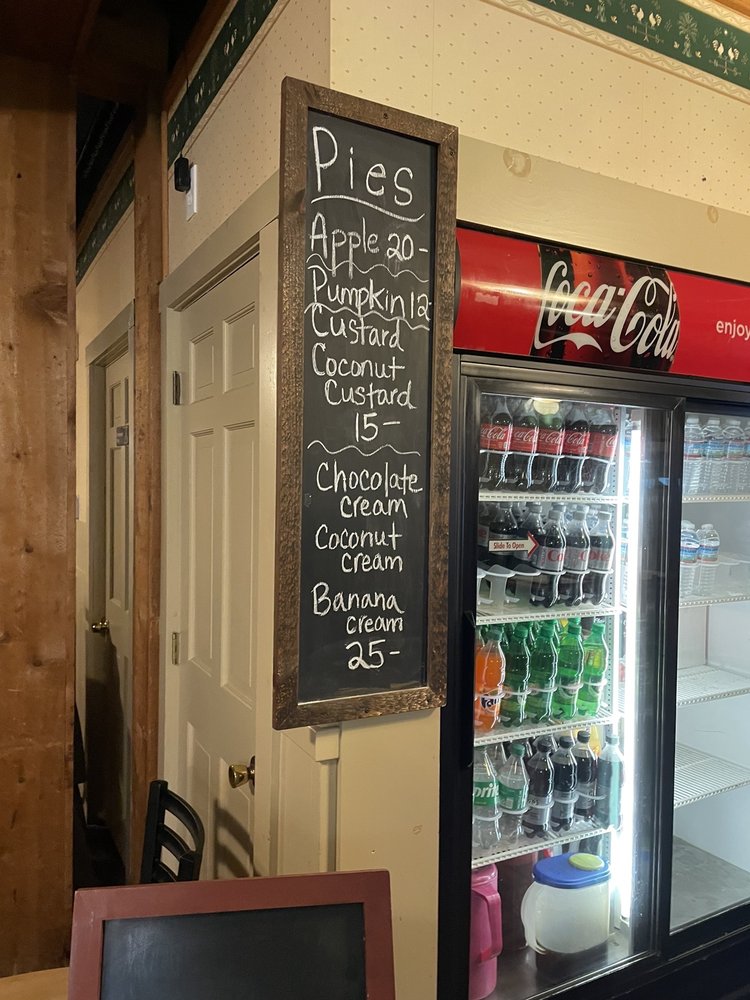 Pies
Apple 20-
Pumpkin 12-
Custard
Coconut
Custard
15-
Chocolate
cream
Coconut
cream
Banana
cream
25-
Coca-Cola
enjoy
Slide To Open